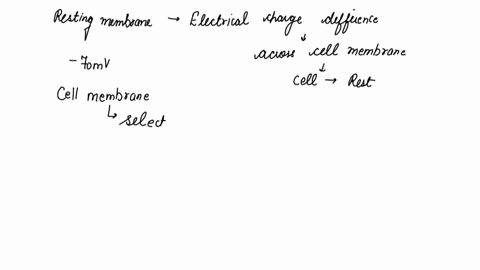 Resting membrane → Electrical charge difference
↓
across cell membrane
↓
Cell → Rest
-70mV
Cell membrane
↳ select